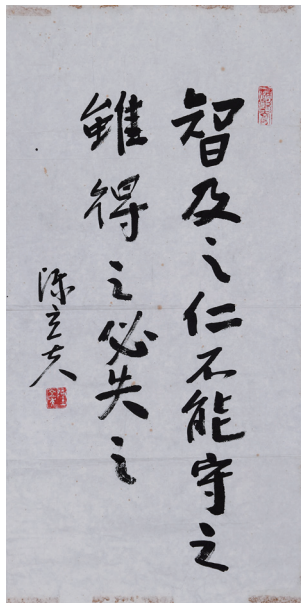 智及之仁不能守之
雖得之必失之
陳立夫